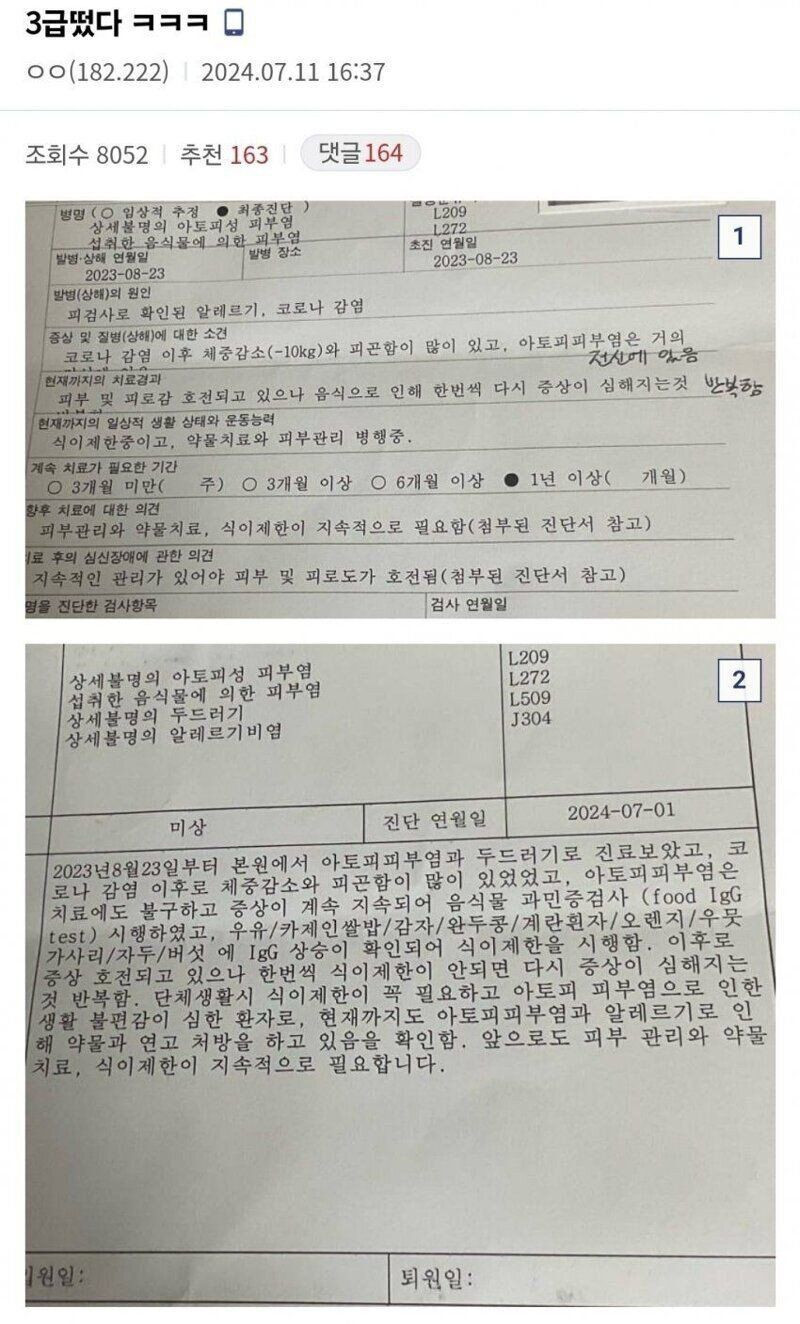 3급떴다 ㅋㅋㅋ
ㅇㅇ(182.222) 2024.07.11 16:37
조회수 8052 추천 163 댓글 164
1
병명 ( ○ 임상적 추정 ● 최종진단 )
상세불명의 아토피성 피부염 L209
섭취한 음식물에 의한 피부염 L272
발병·상해 연월일 발병 장소 초진 연월일
2023-08-23 2023-08-23
발병(상해)의 원인
피검사로 확인된 알레르기, 코로나 감염
증상 및 질병(상해)에 대한 소견
코로나 감염 이후 체중감소(-10kg)와 피곤함이 많이 있고, 아토피피부염은 거의
전신에 있음
현재까지의 치료경과
피부 및 피로감 호전되고 있으나 음식으로 인해 한번씩 다시 증상이 심해지는것 반복함
현재까지의 일상적 생활 상태와 운동능력
식이제한중이고, 약물치료와 피부관리 병행중.
계속 치료가 필요한 기간
○ 3개월 미만( 주) ○ 3개월 이상 ○ 6개월 이상 ● 1년 이상( 개월)
향후 치료에 대한 의견
피부관리와 약물치료, 식이제한이 지속적으로 필요함(첨부된 진단서 참고)
치료 후의 심신장애에 관한 의견
지속적인 관리가 있어야 피부 및 피로도가 호전됨(첨부된 진단서 참고)
진단한 검사항목 검사 연월일
2
상세불명의 아토피성 피부염 L209
섭취한 음식물에 의한 피부염 L272
상세불명의 두드러기 L509
상세불명의 알레르기비염 J304
미상 진단 연월일 2024-07-01
2023년8월23일부터 본원에서 아토피피부염과 두드러기로 진료보았고, 코
로나 감염 이후로 체중감소와 피곤함이 많이 있었었고, 아토피피부염은
치료에도 불구하고 증상이 계속 지속되어 음식물 과민증검사 (food IgG
test) 시행하였고, 우유/카제인쌀밥/감자/완두콩/계란흰자/오렌지/우뭇
가사리/자두/버섯 에 IgG 상승이 확인되어 식이제한을 시행함. 이후로
증상 호전되고 있으나 한번씩 식이제한이 안되면 다시 증상이 심해지는
것 반복함. 단체생활시 식이제한이 꼭 필요하고 아토피 피부염으로 인한
생활 불편감이 심한 환자로, 현재까지도 아토피피부염과 알레르기로 인
해 약물과 연고 처방을 하고 있음을 확인함. 앞으로도 피부 관리와 약물
치료, 식이제한이 지속적으로 필요합니다.
입원일: 퇴원일: